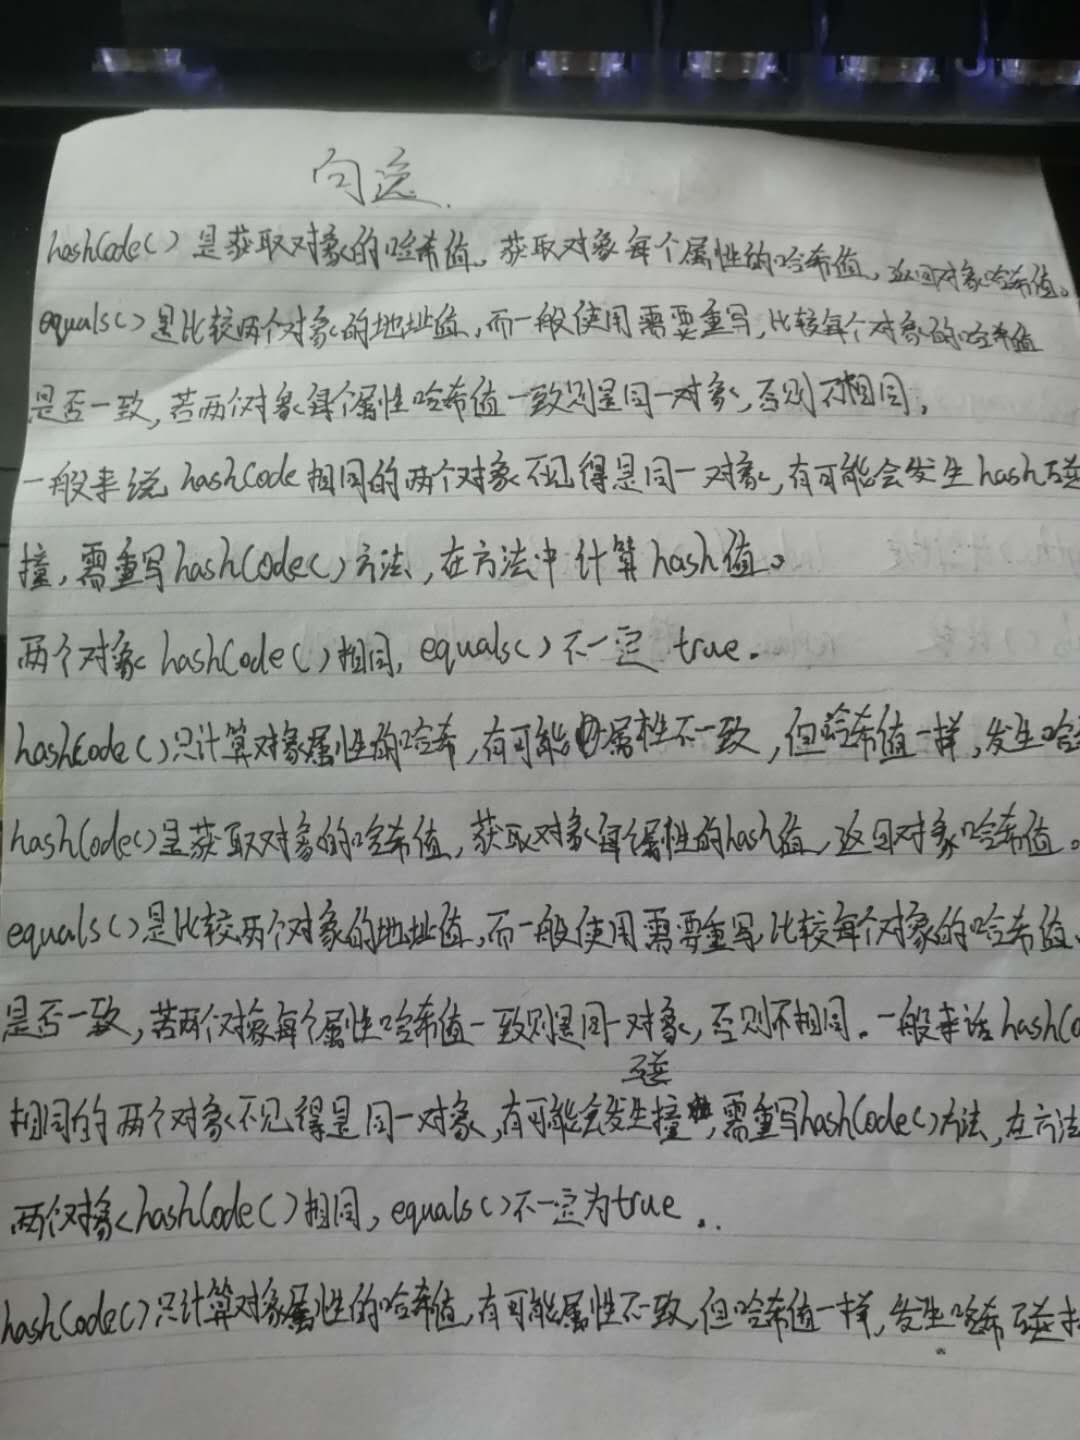 向远
hashCode()是获取对象的哈希值。获取对象每个属性的哈希值,返回对象哈希值。
equals()是比较两个对象的地址值,而一般使用需要重写,比较每个对象的哈希值
是否一致,若两个对象每个属性哈希值一致则是同一对象,否则不相同,
一般来说hashCode相同的两个对象不见得是同一对象,有可能会发生hash碰
撞,需重写hashCode()方法,在方法中计算hash值。
两个对象hashCode()相同,equals()不一定true.
hashCode()只计算对象属性的哈希,有可能属性不一致,但哈希值一样,发生哈
hashCode()是获取对象的哈希值,获取对象每个属性的hash值,返回对象哈希值。
equals()是比较两个对象的地址值,而一般使用需要重写,比较每个对象的哈希值
是否一致,若两个对象每个属性哈希值一致则是同一对象,否则不相同.一般来话hashCo
相同的两个对象不见得是同一对象,有可能会发生碰撞,需重写hashCode()方法,在方法
两个对象hashCode()相同,equals()不一定为true..
hashCode()只计算对象属性的哈希值,有可能属性不一致,但哈希值一样,发生哈希碰